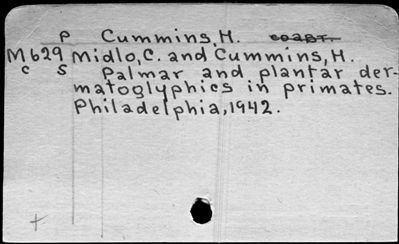 P Cummins, H. coaut.
M629 Midlo, C. and Cummins, H.
c s Palmar and plantar der-
matoglyphics in primates.
Philadelphia, 1942.